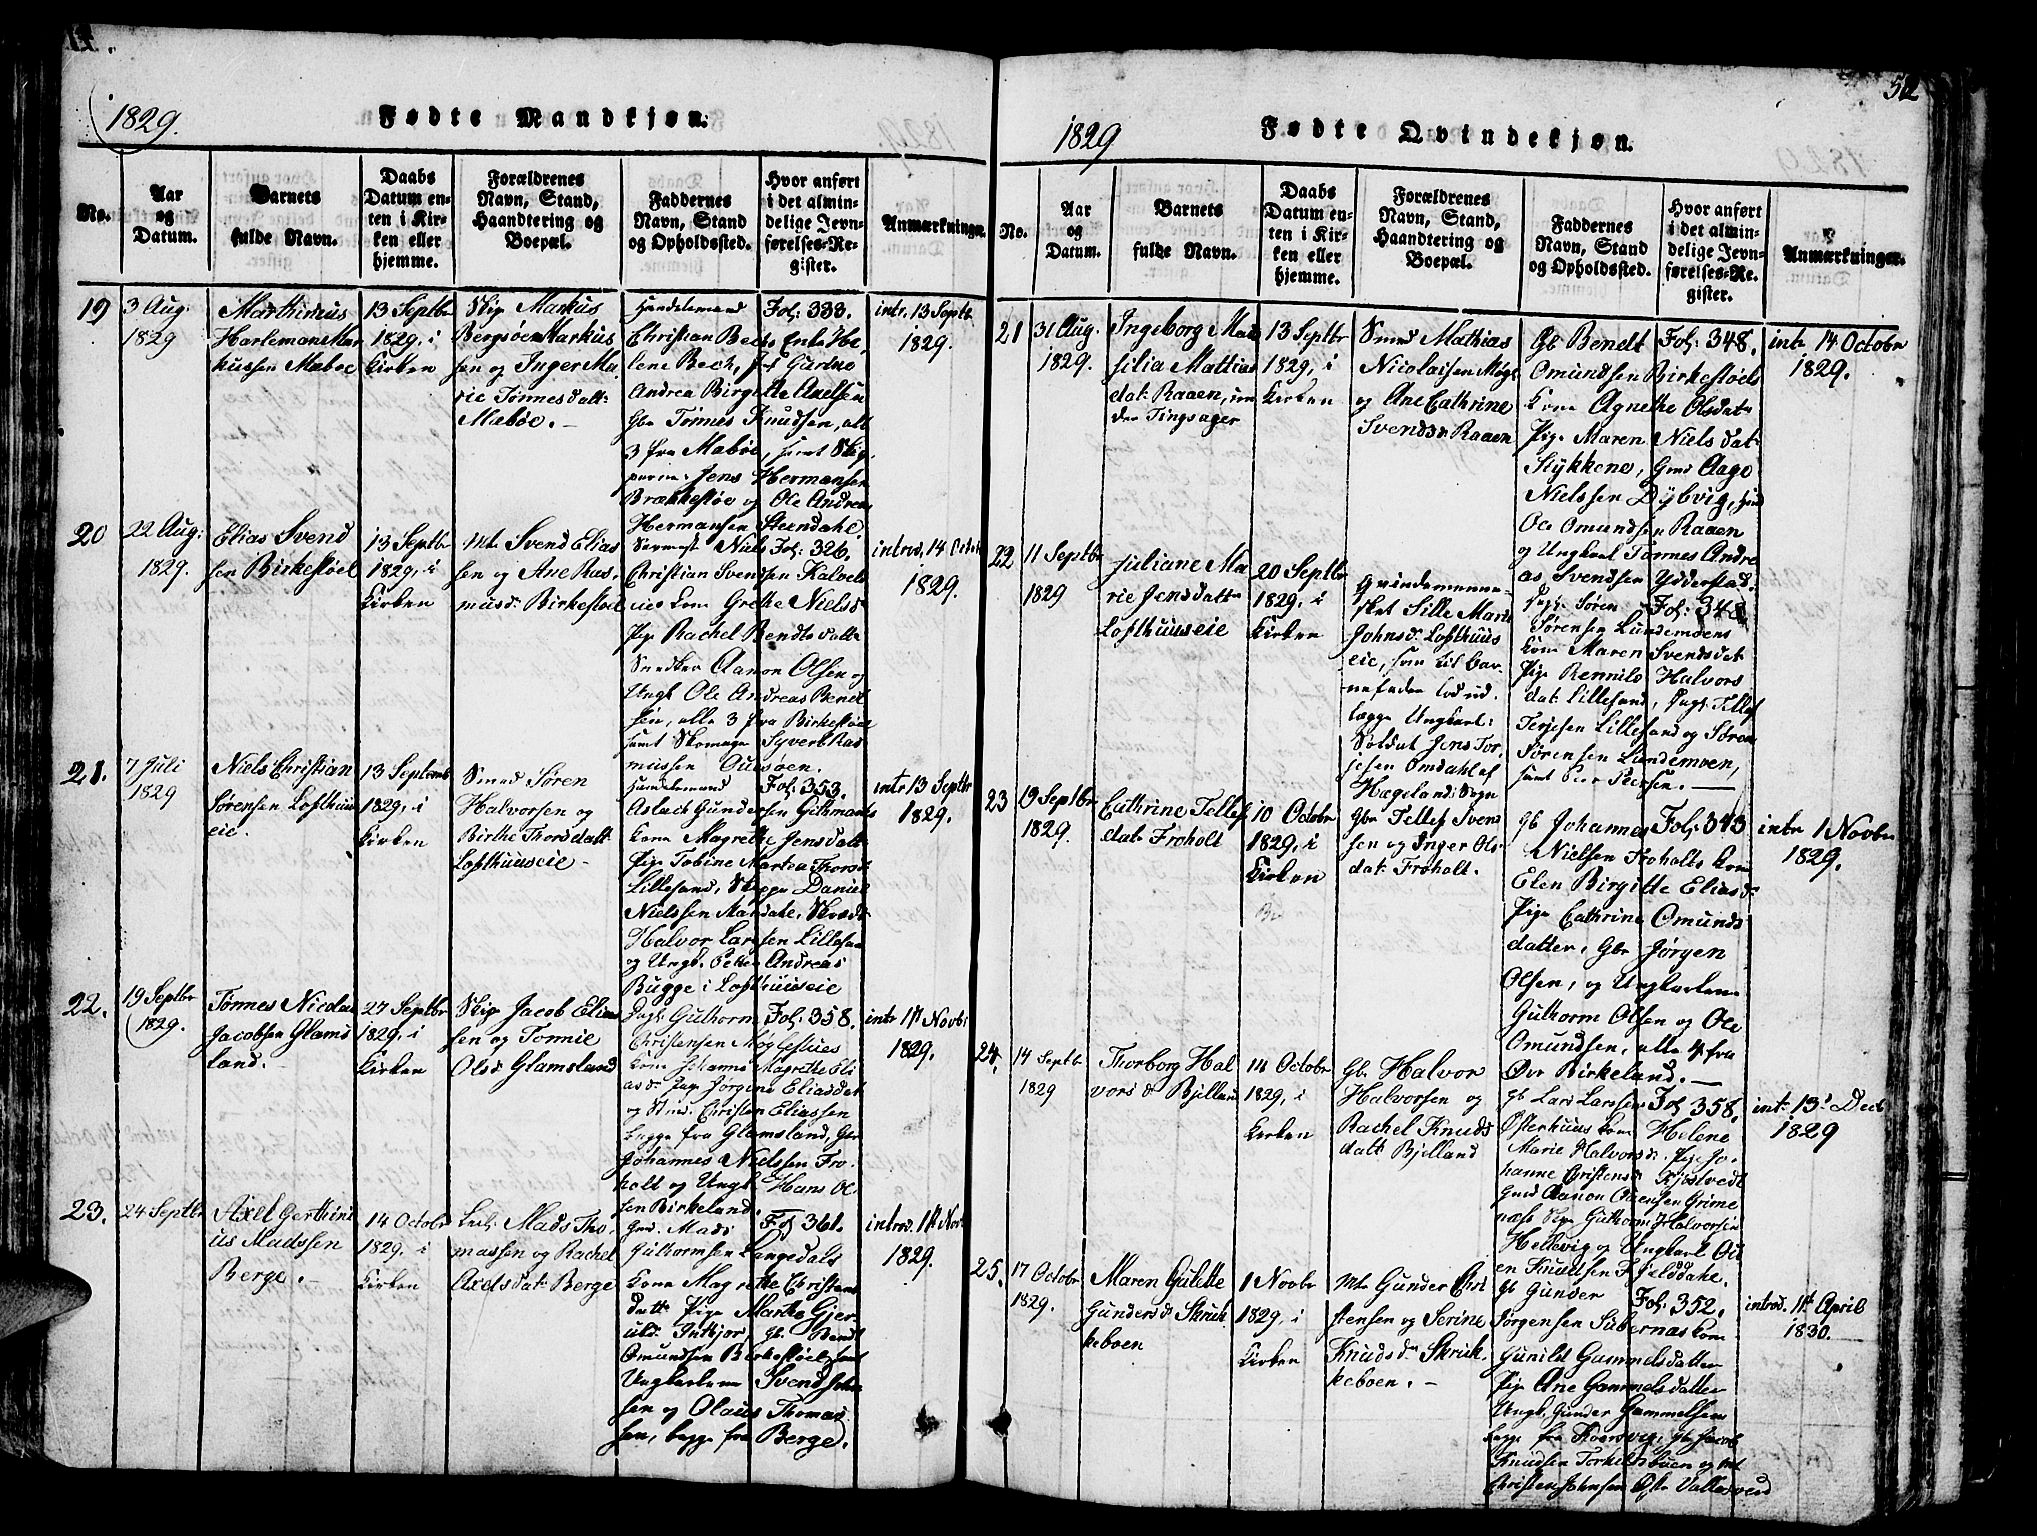 1829.
Fødte Mandkjøn.
No.
Aar
og
Datum.
Barnets
fulde Navn.
Daabs
Datum en-
ten i Kir-
ken eller
hjemme.
Forældrenes
Navn, Stand,
Haandtering og
Boepæl.
Faddernes
Navn, Stand
og Opholdssted.
Hvor anført
i det almin-
delige Jevn-
førelses-Re-
gister.
Anmærkninger.
19
3 Aug.
1829
Marthinius
Harlemann Mar
kussen Mæbøe
13 Septbr
1829, i
Kirken
Skip Markus
Bergsøen Markus
sen og Inger Ma
rie Tønnesdatt:
Mæbøe. -
Handelsmand
Christian Bechs Enke He
lene Bech,
Andrea Birgitte Axelsen
Gbr Tønnes Knudsen, all
3 fra Mæbøe, samt Skip
perne Jens Hermansen
Brækkestøe og Ole Andreas
Hermansen Steendahl.
Fol: 388.
intr. 13 Septbr
1829.
20
22 Aug:
1829.
Elias Svend
sen Birkestøel
13 Septbr
1829, i
Kirken
Mt. Svend Elias
sen og Ane Ras
musd. Birkestøel
Niels
Christian Svendsen Kalveha
ves Kone Grethe Nielsd
Pige Rachel Bendtsdatt.
Snedker Aanon Olsen og
Ungk Ole Andreas Bendt
sen, alle 3 fra Birkestøel
samt Skomager Syvert Ras
mussen
Fol: 326.
introd. 14 Octob
1829.
21.
7 Juli
1829
Niels Christian
Sørensen Lofthuus
eie.
13 Septemb
1829, i
Kirken
Smed Søren
Halvorsen og
Birthe Thorsdatt
Lofthuuseie -
Handelsmand
Aslach Gundersen Githmarks
Kone Magrethe Jensdatt
Pige Tobine Martea Thorsd
Lillesand, Skipper Daniel
Nielssen Mandahl, Skræd.
Halvor Larsen Lillesand
og Ungk. Peter Andreas
Bugge i Lofthuuseie
Fol: 353.
intr 13 Septbr
1829.
22.
19 Septbr
1829.
Tønnes Nicolai
Jacobsen Glams
land. -
27 Septbr
1829, i
Kirken
Skip Jacob Elias
sen og Tomine
Olsd Glamsland
Guthorm
Christensen Møglestues
Kone Johanne Magrethe Eli
asd. Pige Jørgine Eliasdat
og Christen Eliassen
begge fra Glamsland, Gbr
Johannes Nielssen Fro-
holt og Ungk Hans Ol
sen Birkeland.
Fol: 358.
intr 1st Novb:
1829.
23.
24 Septbr
Axel Gerthini
us Madssen
Berge. -
14 Octobr
1829. i
Kirken
Mads Tho,
massen og Rachel
Axelsdat: Berge
Gmd. Mads
Guthormsen Langedals
Kone Magrethe Christens
datt. Pige Marthe Gjer-
uld. Intkjør, Gb. Bendt
Omundsen Birkestøel, samt
Ungkarlene Svend
sen og Olaus Thomas
sen, begge fra Berge.
Fol 361.
introd. 1st Novb
1829.
52
1829
Fødte Qvindekjøn.
No.
Aar
og
Datum.
Barnets
fulde Navn.
Daabs
Datum en-
ten i Kir-
ken eller
hjemme.
Forældrenes
Navn, Stand,
Haandtering og
Boepæl.
Faddernes
Navn, Stand
og Opholdssted.
Hvor anført
i det almin-
delige Jevn-
førelses-Re-
gister.
Anmærkninger.
21
31 Aug.
1829.
Ingeborg Mar
silia Mattias
dat: Raaen, un
der Tingsager
13 Septbr
1829, i
Kirken
Smed Mathias
Nicolaisen
og Ane Cathrine
Svendsd. Raaen
Gb Bendt
Omundsen Birkestøels
Kone Agnethe Olsdat.
Pige Maren Nielsdat.
Stykkene, Gmd Aage
Nielssen Dybvig, Smed
Ole Omundsen Raaen
og Ungkarl Tønnes Andre
as Svendsen Ydderstad.
Fol: 348.
intr 14 Octobr
1829.
22
11 Septbr
1829
Juliane Ma
rie Jensdatt.
Lofthuuseie
20 Septbr
1829, i
Kirken
Qvindemenne-
sket Sille Marie
Johnsd. Lofthuus
eie, som til Bar
nefader lod ud.
lægge Ungkarl:
Soldat Jens Tor
jesen Omdahl af
Hægeland: Sogn
Søren
Sørensen Lundemoens
Kone Maren Svendsdat.
Pige Rennilo Halvors
dat: Lillesand, Dagk: Tellef
Terjesen Lillesand og Søren
Sørensen Lundemoen,
samt Peer Peersen. -
Fol: 348
23
19 Septbr
1829.
Cathrine Tellefs
dat: Froholt
10 Octobr
1829, i
Kirken
Gbr Tellef Svens
sen og Inger Ols
dat: Froholt.
Gb Johannes
Nielsen Froholts Kone
Elen Birgitte Eliasd.
Pige Cathrine Omunds
datter, Gbr Jørgen
Olsen, og Ungkarlene
Guthorm Olsen og Ole
Omundsen, alle 4 fra
Øvr Birkeland. -
Fol: 343
intr 1 Novbr
1829.
24.
14 Septbr
1829
Thorborg Hal
vorsd Bjelland
14 Octobr
1829, i
Kirken
Gb. Halvor
Halvorsen og
Rachel Knuds
datt Bjelland
Gb Lars Larssen
Østerhuus Kone Helene
Marie Halvorsd. Pige Jo-
hanne Christensd. Kjøstvedt
Gmd Aanon Ouensen Grime
næss Skip Guthorm Halvorsen
Hellevig og Ungkarl Ou
en Knudsen Fjelddahl.
Fol. 358.
intr. 13 Decb
1829
25.
17 Octobr
1829.
Maren Gulette
Gundersd Skruk
keboen
1 Novbr
1829, i
Kirken
Mt Gunder Chri
stensen og Serine
Knudsd. Skruk.
keboen. -
Gb Gunder
Jørgensen Kone
Gunild Gammelsdatter
Pige Ane Gammelsdatter
Ungk. Gunder Gammelsen
begge fra Gb Jacob
Knudsen Torkelsbuen og Mt
Christen Johnsen Øst. Vallesverd
Fol: 352.
introd. 11t April
1830.